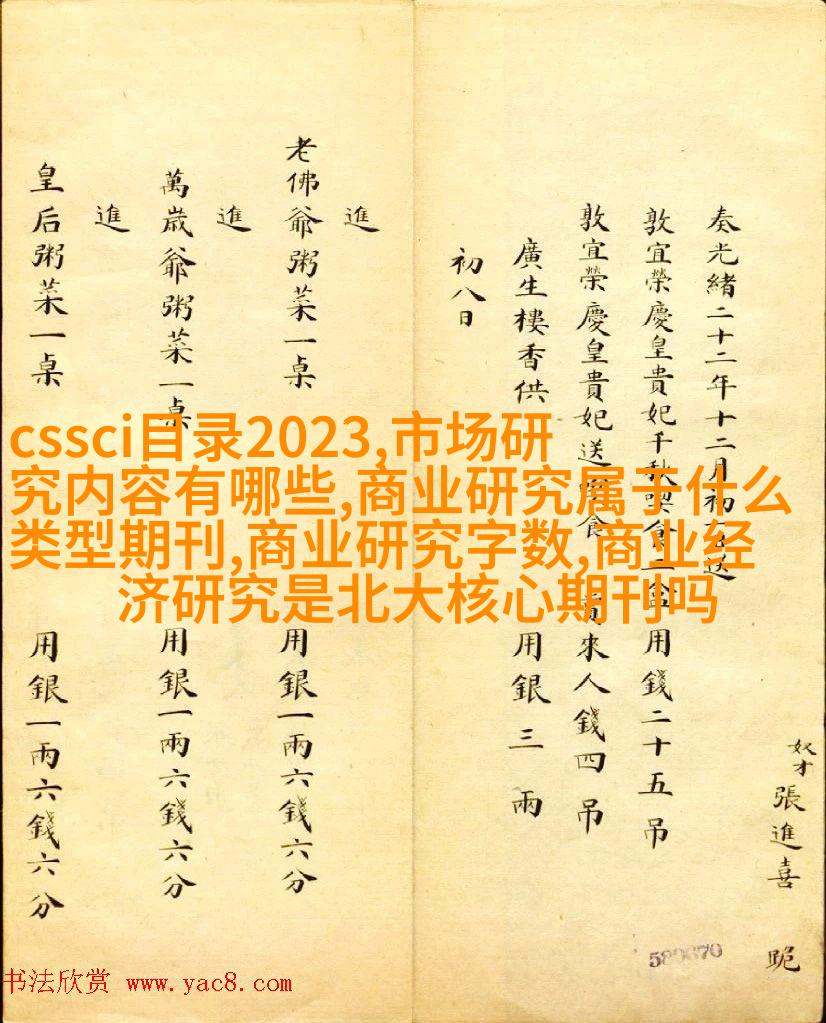 奴才張進喜 跪
奏光緒二十二年十二月初
敦宜榮慶皇貴妃千秋喫食一盒用錢二十五吊
敦宜榮慶皇貴妃送 食 賞來人錢四吊
廣生樓香供 用銀三兩
初八日
進
老佛爺粥菜一桌 用銀一兩六錢六分
進
萬歲爺粥菜一桌 用銀一兩六錢六分
進
皇后粥菜一桌 用銀一兩六錢六分
cssci目录2023,市场研
究内容有哪些,商业研究属于什么
类型期刊,商业研究字数,商业经
济研究是北大核心期刊吗
书法欣赏 www.yac8.com